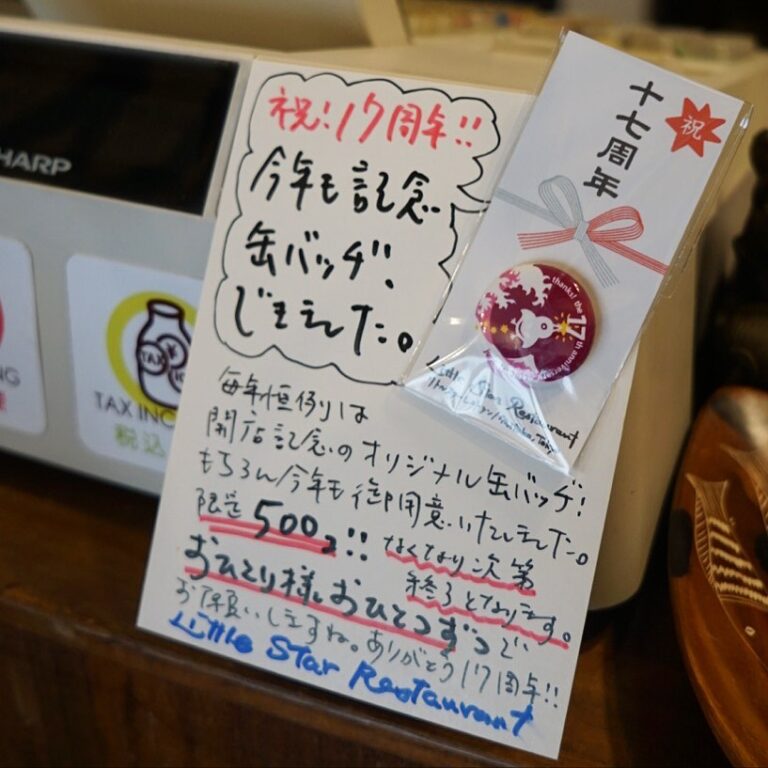 祝!17周年!!
今年も記念
缶バッヂ、
できました。
毎年恒例は
開店記念のオリジナル缶バッヂ!
もちろん今年も御用意いたしました。
限定500コ!! なくなり次第
終了となります。
おひとり様おひとつずつで
お願いしますね。ありがとう17周年!!
Little Star Restaurant
祝
十七周年
thanks! the 17th anniversary
Little Star Restaurant
HARP
TAX INC
税込
NG